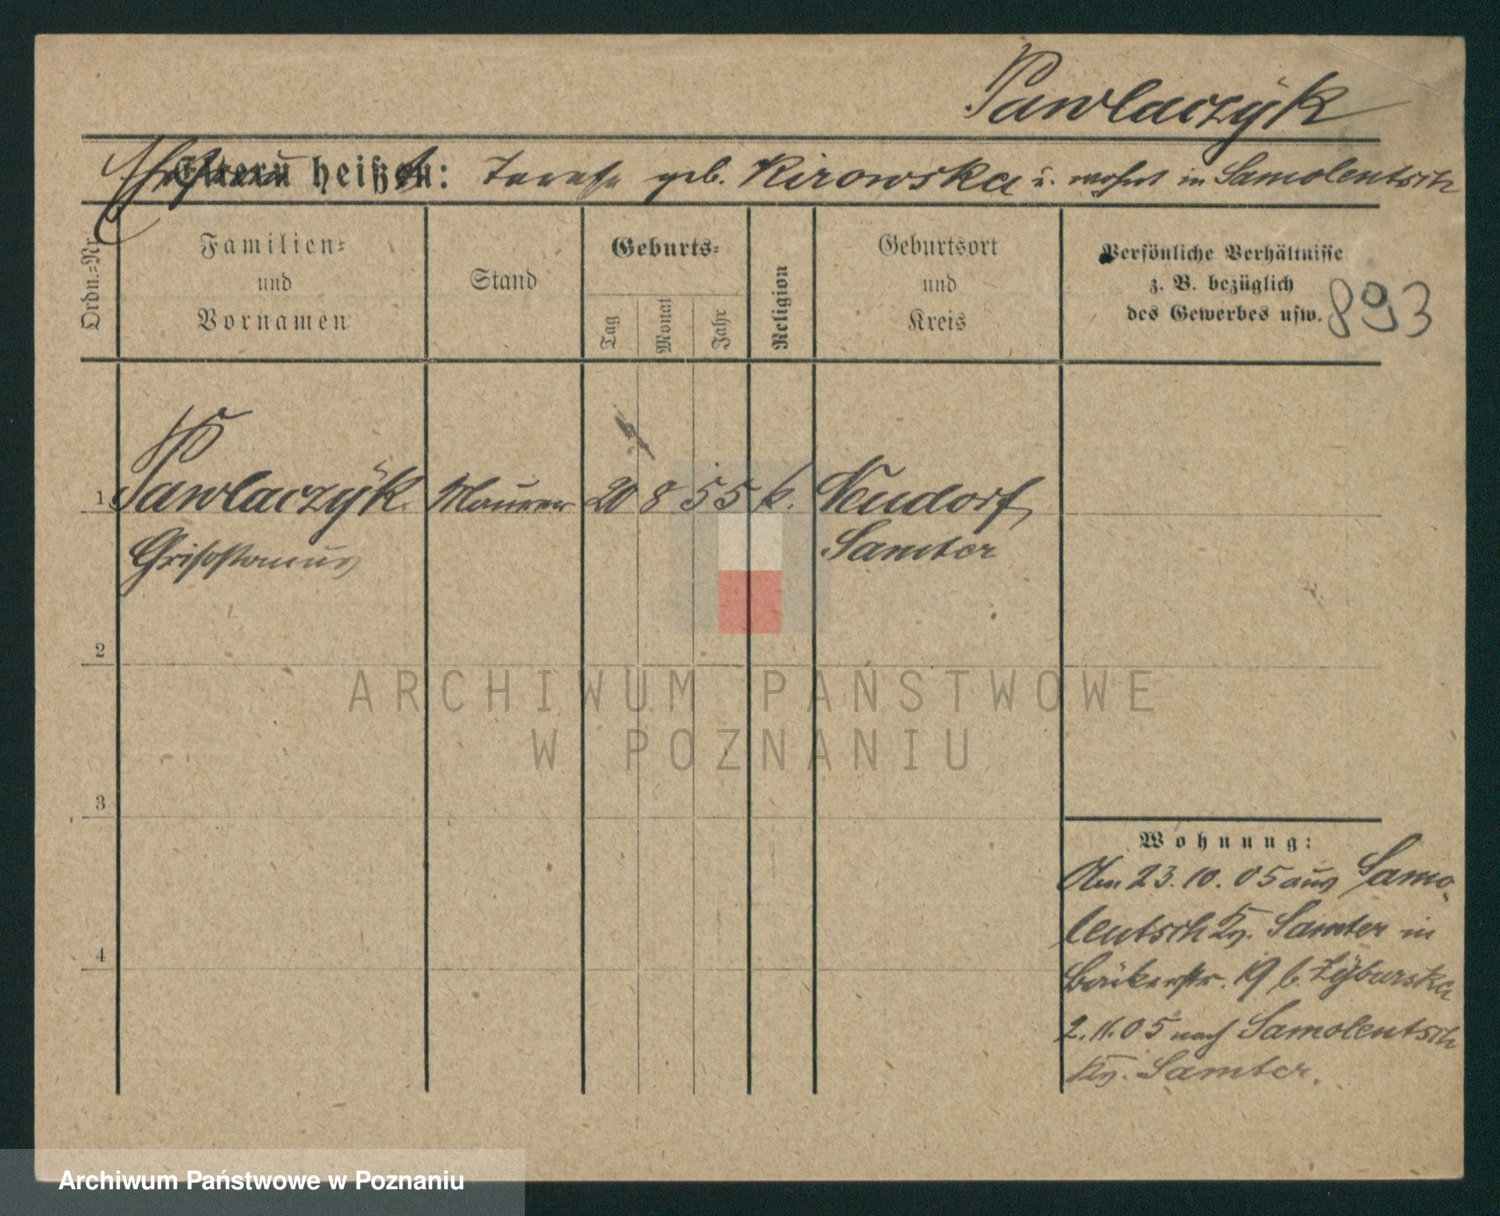 Pawlaczÿk
Eltern heißen: Terese geb. Kirowska u. wohnt in Samolentsch
Ordn.=Nr.
Familien=
und
Vornamen
Stand
Geburts=
Tag
Monat
Jahr
Religion
Geburtsort
und
Kreis
Persönliche Verhältnisse
z. B. bezüglich
des Gewerbes usw.
893
1 Pawlaczÿk Maurer 20 8 55 k. Neudorf
Grisostomus Samter
2
3
4
Wohnung:
Am 23.10.05 aus Samo-
lentsch Kr. Samter in
Bäckerstr. 19 b. Zÿburska
2.11.05 nach Samolentsch
Kr. Samter.
ARCHIWUM PAŃSTWOWE
W POZNANIU
Archiwum Państwowe w Poznaniu